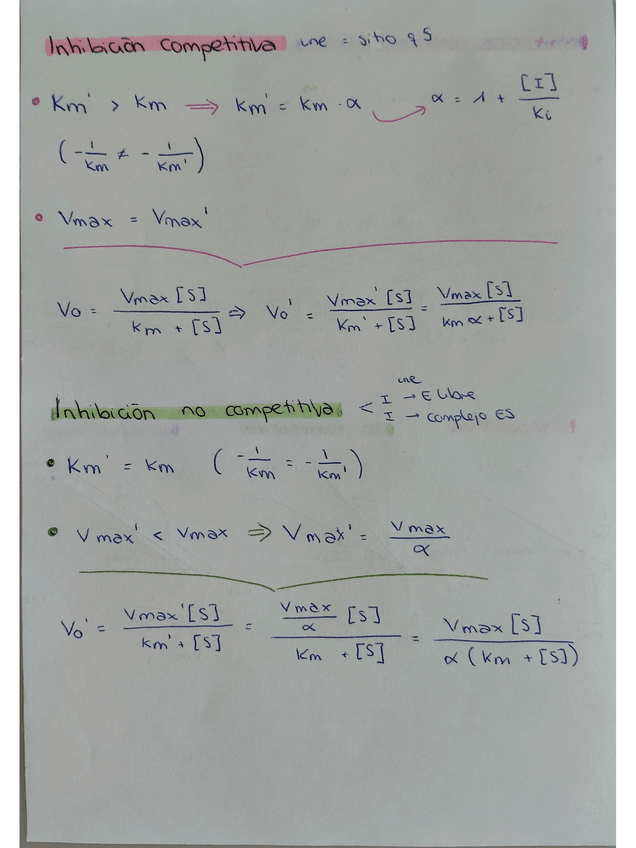 Inhibición competitiva une = sitio q S
• Km' > Km ⇒ Km' = Km · α → α = 1 + [I]/Ki
(-1/Km ≠ -1/Km')
• Vmax = Vmax'
Vo = Vmax [S] / Km + [S] ⇒ Vo' = Vmax' [S] / Km' + [S] = Vmax [S] / Km α + [S]
Inhibición no competitiva <
une
I → E libre
I → complejo ES
• Km' = Km (-1/Km = -1/Km')
• Vmax' < Vmax ⇒ Vmax' = Vmax/α
Vo' = Vmax' [S] / Km' + [S] = Vmax/α [S] / Km + [S] = Vmax [S] / α (Km + [S])